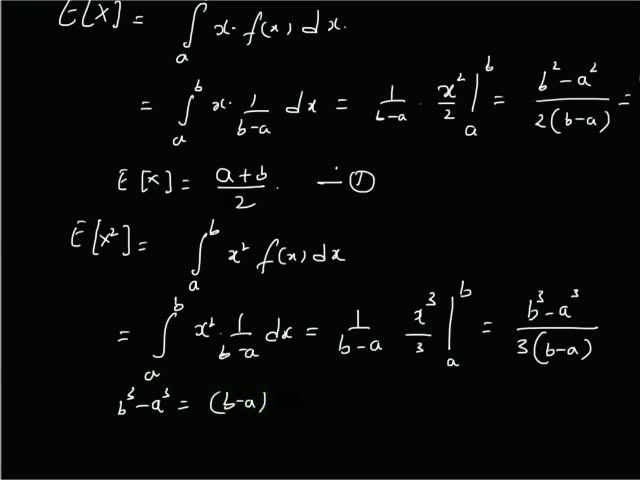 E[X] = ∫ₐ x. f(x) dx.
= ∫ₐᵇ x. 1/(b-a) dx = 1/(b-a) . x²/2 |ₐᵇ = (b²-a²)/(2(b-a)) =
E[X] = (a+b)/2. — ①
E[X²] = ∫ₐᵇ x² f(x) dx
= ∫ₐᵇ x². 1/(b-a) dx = 1/(b-a) x³/3 |ₐᵇ = (b³-a³)/(3(b-a))
b³-a³ = (b-a)